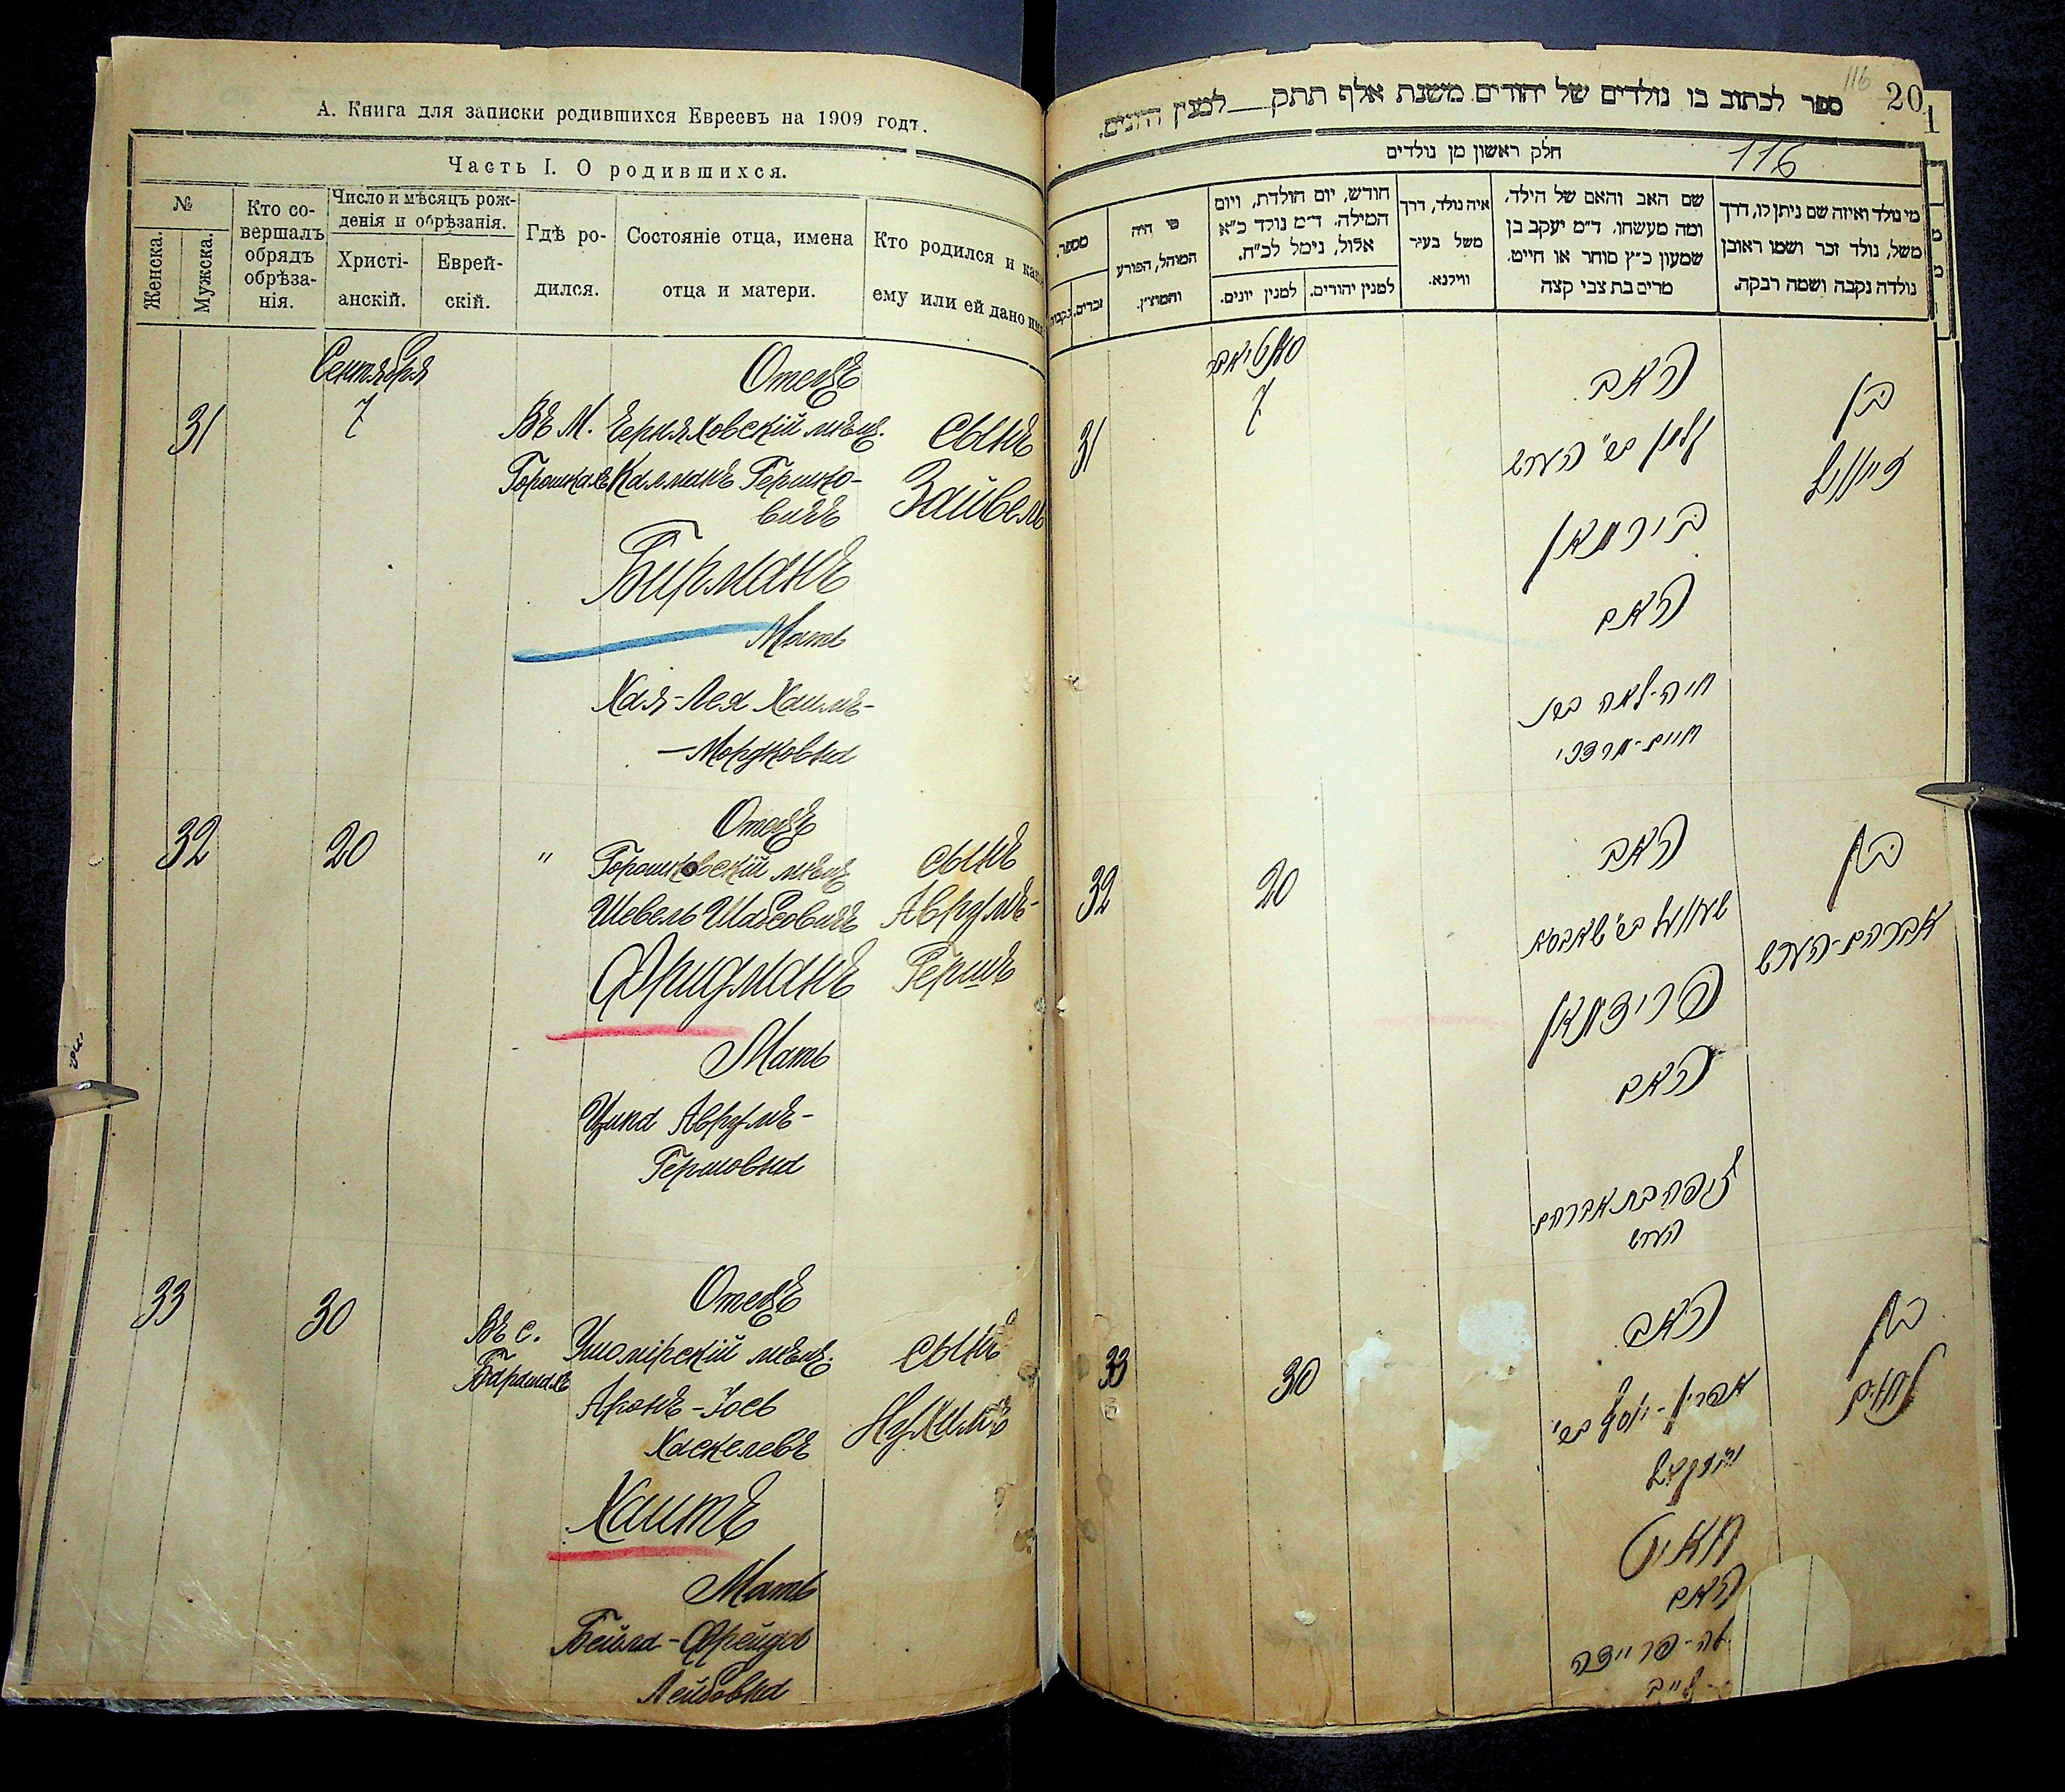 А. Книга для записки родившихся Евреевъ на 1909 годъ.
Часть I. О родившихся.
№
Женска.
Мужска.
Кто со-
вершалъ
обрядъ
обрѣза-
нія.
Число и мѣсяцъ рож-
денія и обрѣзанія.
Христі-
анскій.
Еврей-
скій.
Гдѣ ро-
дился.
Состояніе отца, имена
отца и матери.
Кто родился и како
ему или ей дано имя
Сентября
31
7
Въ М.
Горошкахъ
Отецъ
Черняховскій мѣщ.
Калманъ Гершко-
вичъ
Бирманъ
Мать
Хая-Лея Хаимъ-
-Мордковна
Сынъ
Зайвель
32
20
"
Отецъ
Горошковскій мѣщ
Шевель Шабсовичъ
Фридманъ
Мать
Ципа Аврумъ-
Гершовна
Сынъ
Аврумъ-
Гершъ
33
30
Въ с.
Барашахъ
Отецъ
Ушомірскій мѣщ.
Аронъ-Іось
Хаскелевъ
Хаитъ
Мать
Бейла-Фрейда
Лейбовна
Сынъ
Нухимъ
116
20
ספר לכתוב בו נולדים של יהודים משנת אלף תתק___למנין היונים.
חלק ראשון מן נולדים
116
מי נולד ואיזה שם ניתן לו, דרך
משל, נולד זכר ושמו ראובן
נולדה נקבה ושמה רבקה.
שם האב והאם של הילד,
ומה מעשהו. ד״מ יעקב בן
שמעון כ״ץ סוחר או חייט.
מרים בת צבי קצה
איה נולד, דרך
משל בעיר
ווילנא.
חודש, יום הולדת, ויום
המילה. ד״מ נולד כ״א
אלול, נימל לכ״ח.
למנין יהודים.
למנין יונים.
מי היה
המוהל, הפורע
והמוצץ.
מספר.
זכרים.
נקבות
31
7
האב
בירמאן
האם
חיה-לאה בת
חיים-מרדכי
בן
זייוויל
32
20
האב
פרידמאן
האם
ציפה בת אברהם
הערש
בן
אברהם-הערש
33
30
האב
חאיט
האם
בן
נחום